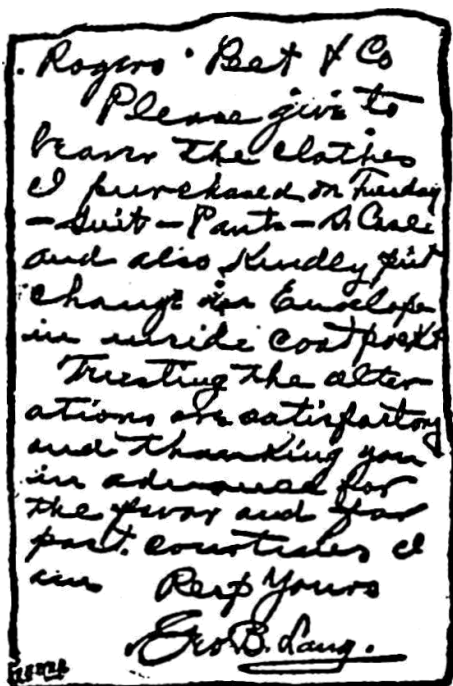 Rogers Peet & Co
Please give to
bearer the clothes
I purchased on Tuesday
- Suit - Pants - S. Coat
and also Kindly put
change in Envelope
in inside coat pocket
Trusting the alter
ations are satisfactory
and thanking you
in advance for
the favor and for
past courtesies I
am Resp Yours
Geo B. Lang.